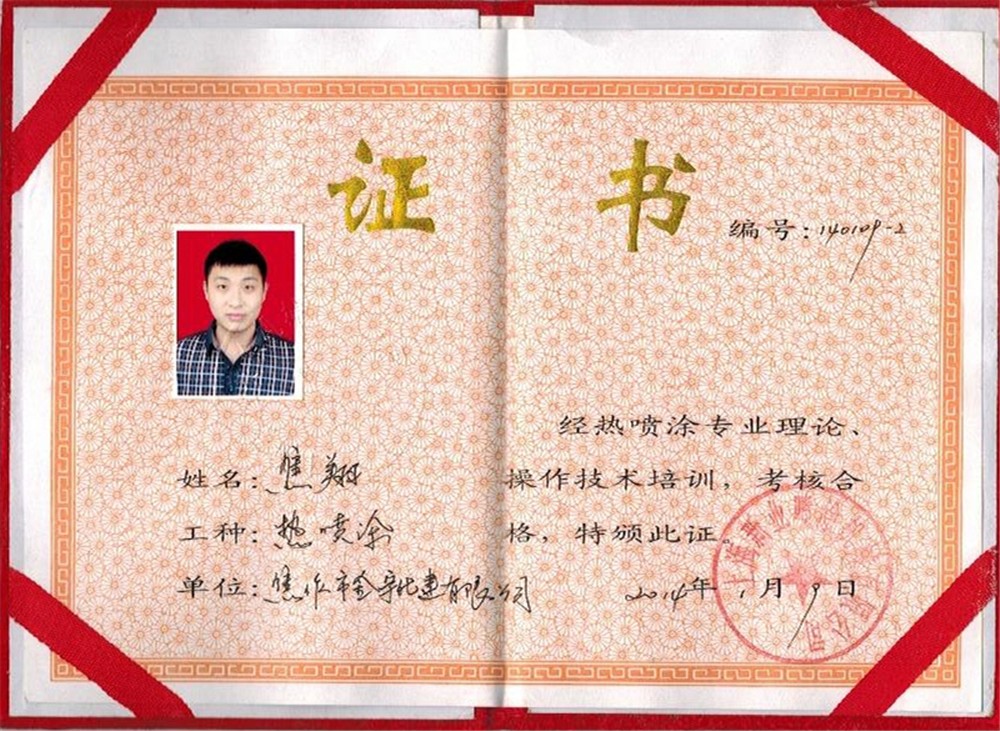 证书
编号：140109-2
姓名：焦翔
工种：热喷涂
单位：焦作市金新建有限公司
经热喷涂专业理论、
操作技术培训，考核合
格，特颁此证。
2014年1月9日